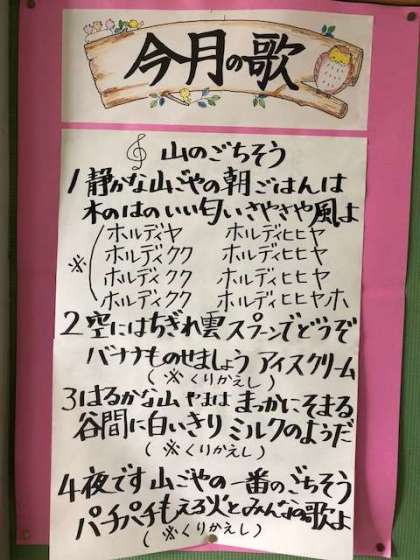 今月の歌
山のごちそう
1静かな山ごやの朝ごはんは
木のはのいい匂いさやさや風よ
ホルディヤ ホルディヒヒヤ
※ホルディクク ホルディヒヒヤ
ホルディクク ホルディヒヒヤ
ホルディクク ホルディヒヒヤホ
2空にはちぎれ雲スプーンでどうぞ
バナナものせましょう アイスクリーム
(※くりかえし)
3はるかな山やまは まっかにそまる
谷間に白いきり ミルクのようだ
(※くりかえし)
4夜です山ごやの一番のごちそう
パチパチもえろ火とみんなの歌よ
(※くりかえし)